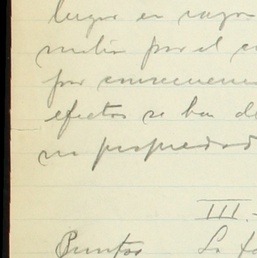 lugar en razon
por el
por consecuencia
efectos se han de
no propiedad
III.-
Puntos La